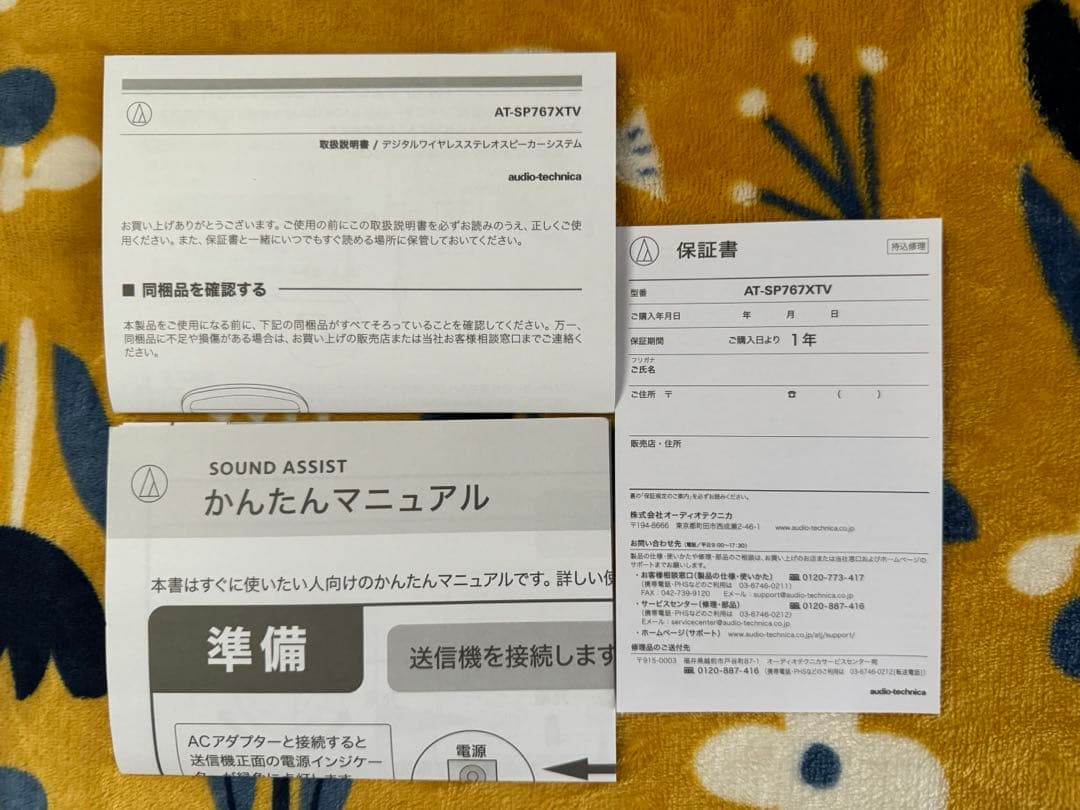 AT-SP767XTV
取扱説明書 / デジタルワイヤレスステレオスピーカーシステム
audio-technica
お買い上げありがとうございます。ご使用の前にこの取扱説明書を必ずお読みのうえ、正しくご使
用ください。また、保証書と一緒にいつでもすぐ読める場所に保管しておいてください。
■ 同梱品を確認する
本製品をご使用になる前に、下記の同梱品がすべてそろっていることを確認してください。万一、
同梱品に不足や損傷がある場合は、お買い上げの販売店または当社お客様相談窓口までご連絡く
ださい。
SOUND ASSIST
かんたんマニュアル
本書はすぐに使いたい人向けのかんたんマニュアルです。詳しい使
準備
送信機を接続します
ACアダプターと接続すると
送信機正面の電源インジケー
ターが緑色に点灯します
電源
保証書
持込修理
型番 AT-SP767XTV
ご購入年月日 年 月 日
保証期間 ご購入日より 1年
フリガナ
ご氏名
ご住所 〒 ☎ ( )
販売店・住所
裏の「保証規定のご案内」を必ずお読みください。
株式会社オーディオテクニカ
〒194-8666 東京都町田市西成瀬2-46-1 www.audio-technica.co.jp
お問い合わせ先(電話/平日9:00〜17:30)
製品の仕様・使いかたや修理・部品のご相談は、お買い上げのお店または当社窓口およびホームページの
サポートまでお願いします。
・お客様相談窓口(製品の仕様・使いかた) 0120-773-417
(携帯電話・PHSなどのご利用は 03-6746-0211)
FAX:042-739-9120 Eメール:support@audio-technica.co.jp
・サービスセンター(修理・部品) 0120-887-416
(携帯電話・PHSなどのご利用は 03-6746-0212)
Eメール:servicecenter@audio-technica.co.jp
・ホームページ(サポート) www.audio-technica.co.jp/atj/support/
修理品のご送付先
〒915-0003 福井県越前市戸谷町87-1 オーディオテクニカサービスセンター宛
0120-887-416 (携帯電話・PHSなどのご利用は 03-6746-0212[転送電話])
audio-technica